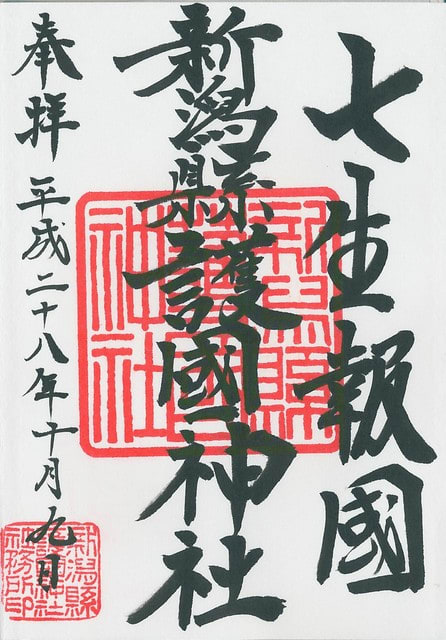 七生報國
新潟縣護國神社
奉拝 平成二十八年十月九日
新潟縣護國神社
新潟縣護國神社社務所印